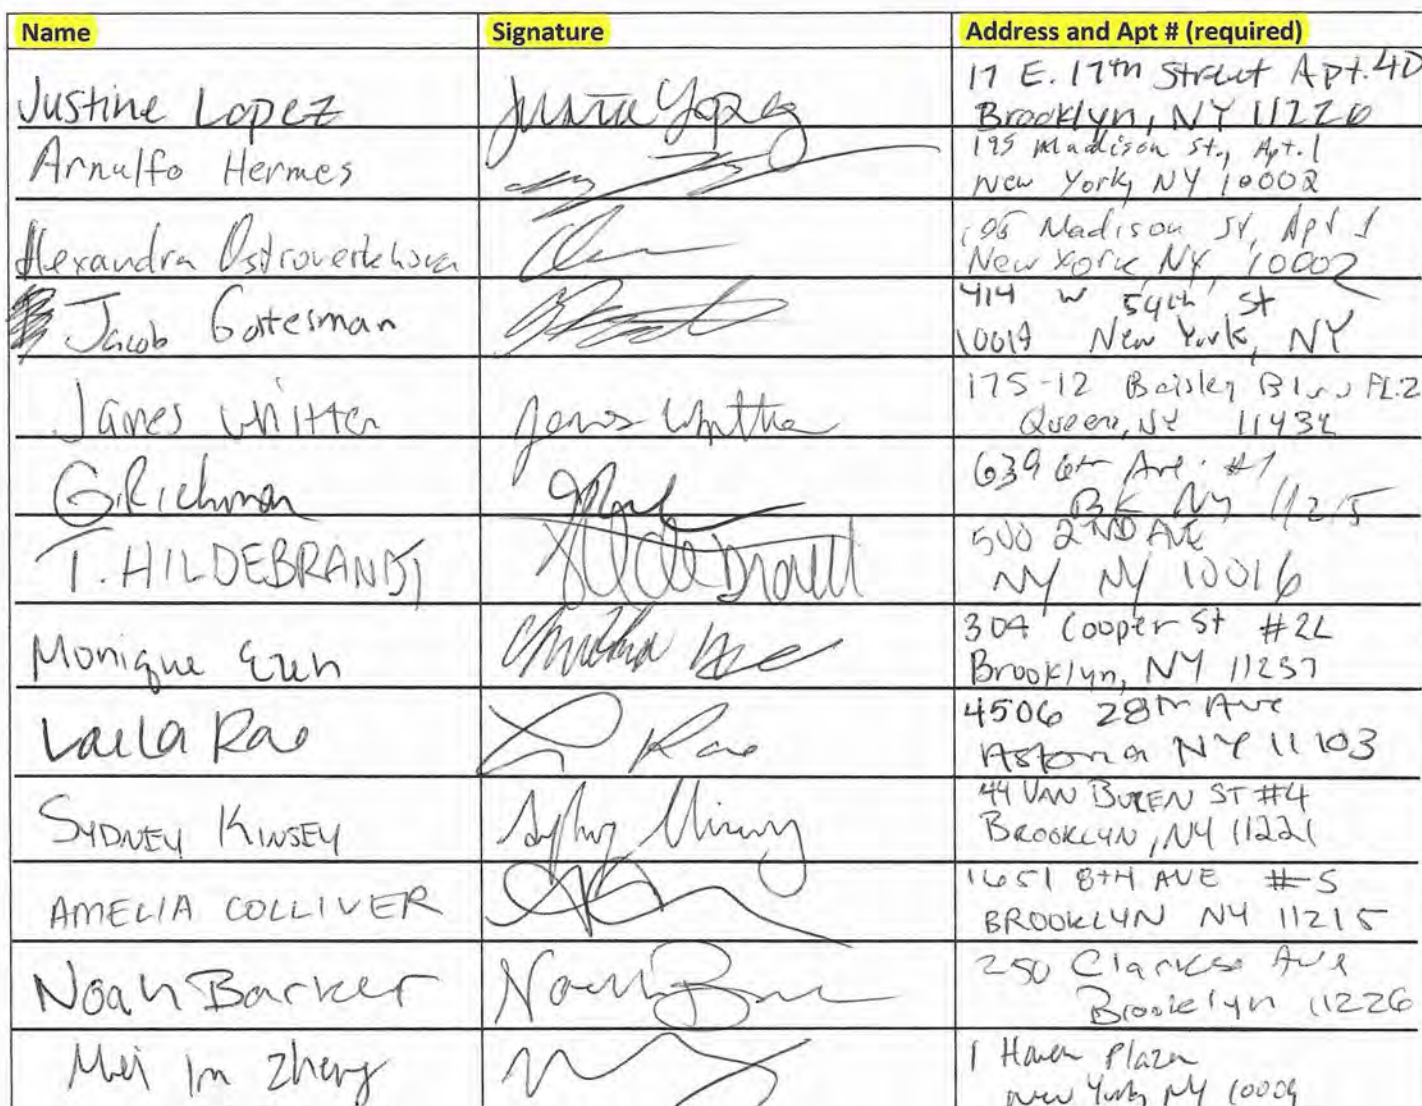 Name Signature Address and Apt # (required)
Justine Lopez Justine Lopez 17 E. 17th Street Apt. 4D
Brooklyn, NY 11226
Arnulfo Hermes 195 Madison St., Apt. 1
New York, NY 10002
Alexandra Ostroverkhova 195 Madison St, Apt 1
New York, NY, 10002
Jacob Gottesman 414 W 54th St
10019 New York, NY
James Whitten James Whitten 175-12 Baisley Blvd FL.2
Queens, NY 11434
G. Richman 639 6th Ave. #1
BK NY 11215
T. HILDEBRANDT Hildebrandt 500 2ND AVE
NY NY 10016
Monique 304 Cooper St #2L
Brooklyn, NY 11237
Laila Rao L Rao 4506 28th Ave
Astoria NY 11103
SYDNEY KINSEY Sydney Kinsey 44 VAN BUREN ST #4
BROOKLYN, NY 11221
AMELIA COLLIVER 1651 8TH AVE #5
BROOKLYN NY 11215
Noah Barker Noah B 250 Clarkson Ave
Brooklyn 11226
Mei Zheng 1 Haven Plaza
New York NY 10009